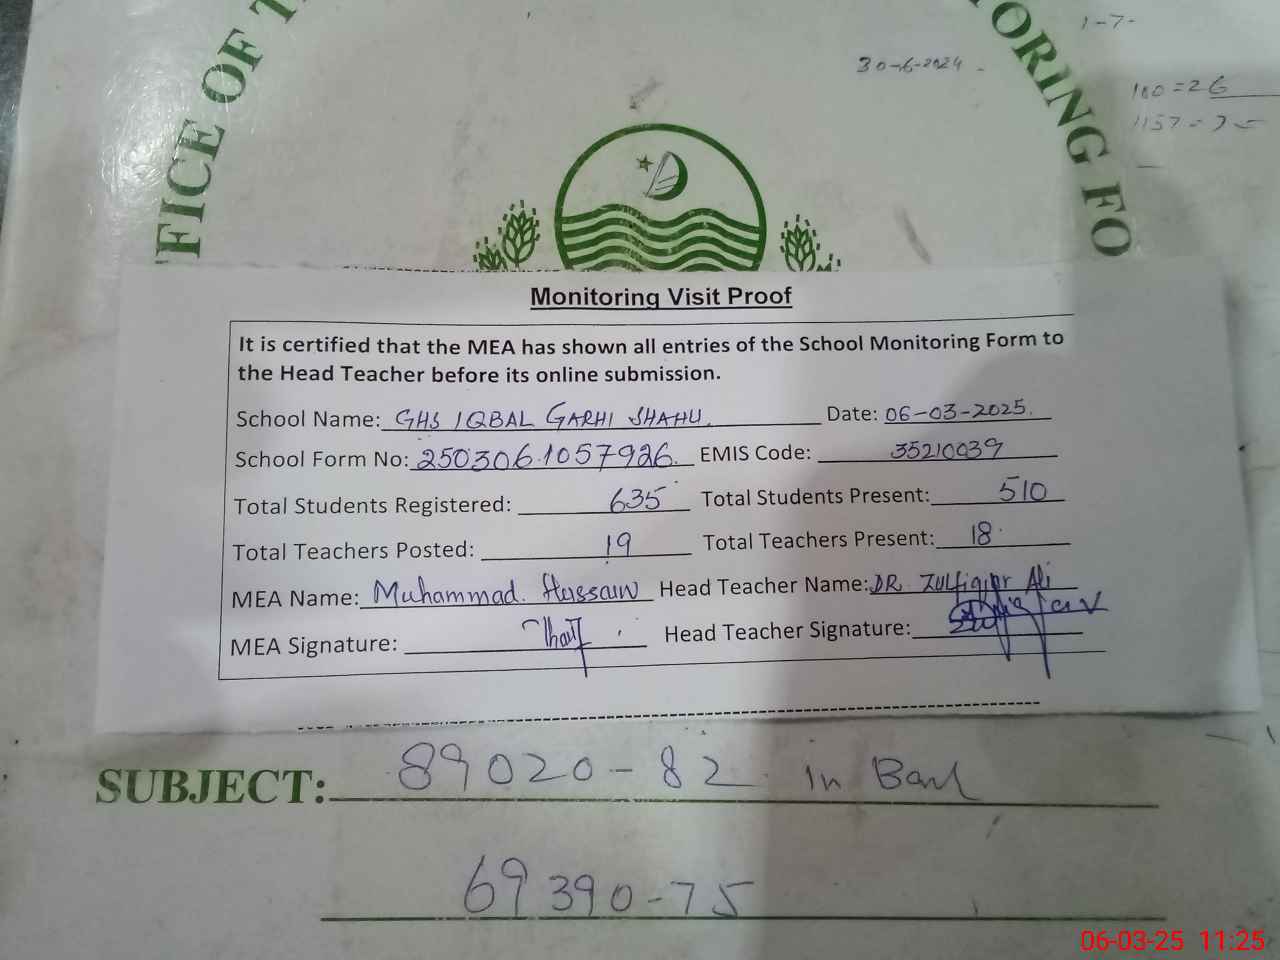 FICE OF T
TORING FO
1-7-
30-6-2024
100=26
1157=
Monitoring Visit Proof
It is certified that the MEA has shown all entries of the School Monitoring Form to
the Head Teacher before its online submission.
School Name: GHS IQBAL GARHI SHAHU. Date: 06-03-2025.
School Form No: 250306.1057926. EMIS Code: 35210039
Total Students Registered: 635 Total Students Present: 510
Total Teachers Posted: 19 Total Teachers Present: 18
MEA Name: Muhammad. Hussain Head Teacher Name: DR Zulfiqar Ali
MEA Signature: Head Teacher Signature:
SUBJECT: 89020-82 in Bank
69390-75
06-03-25 11:25